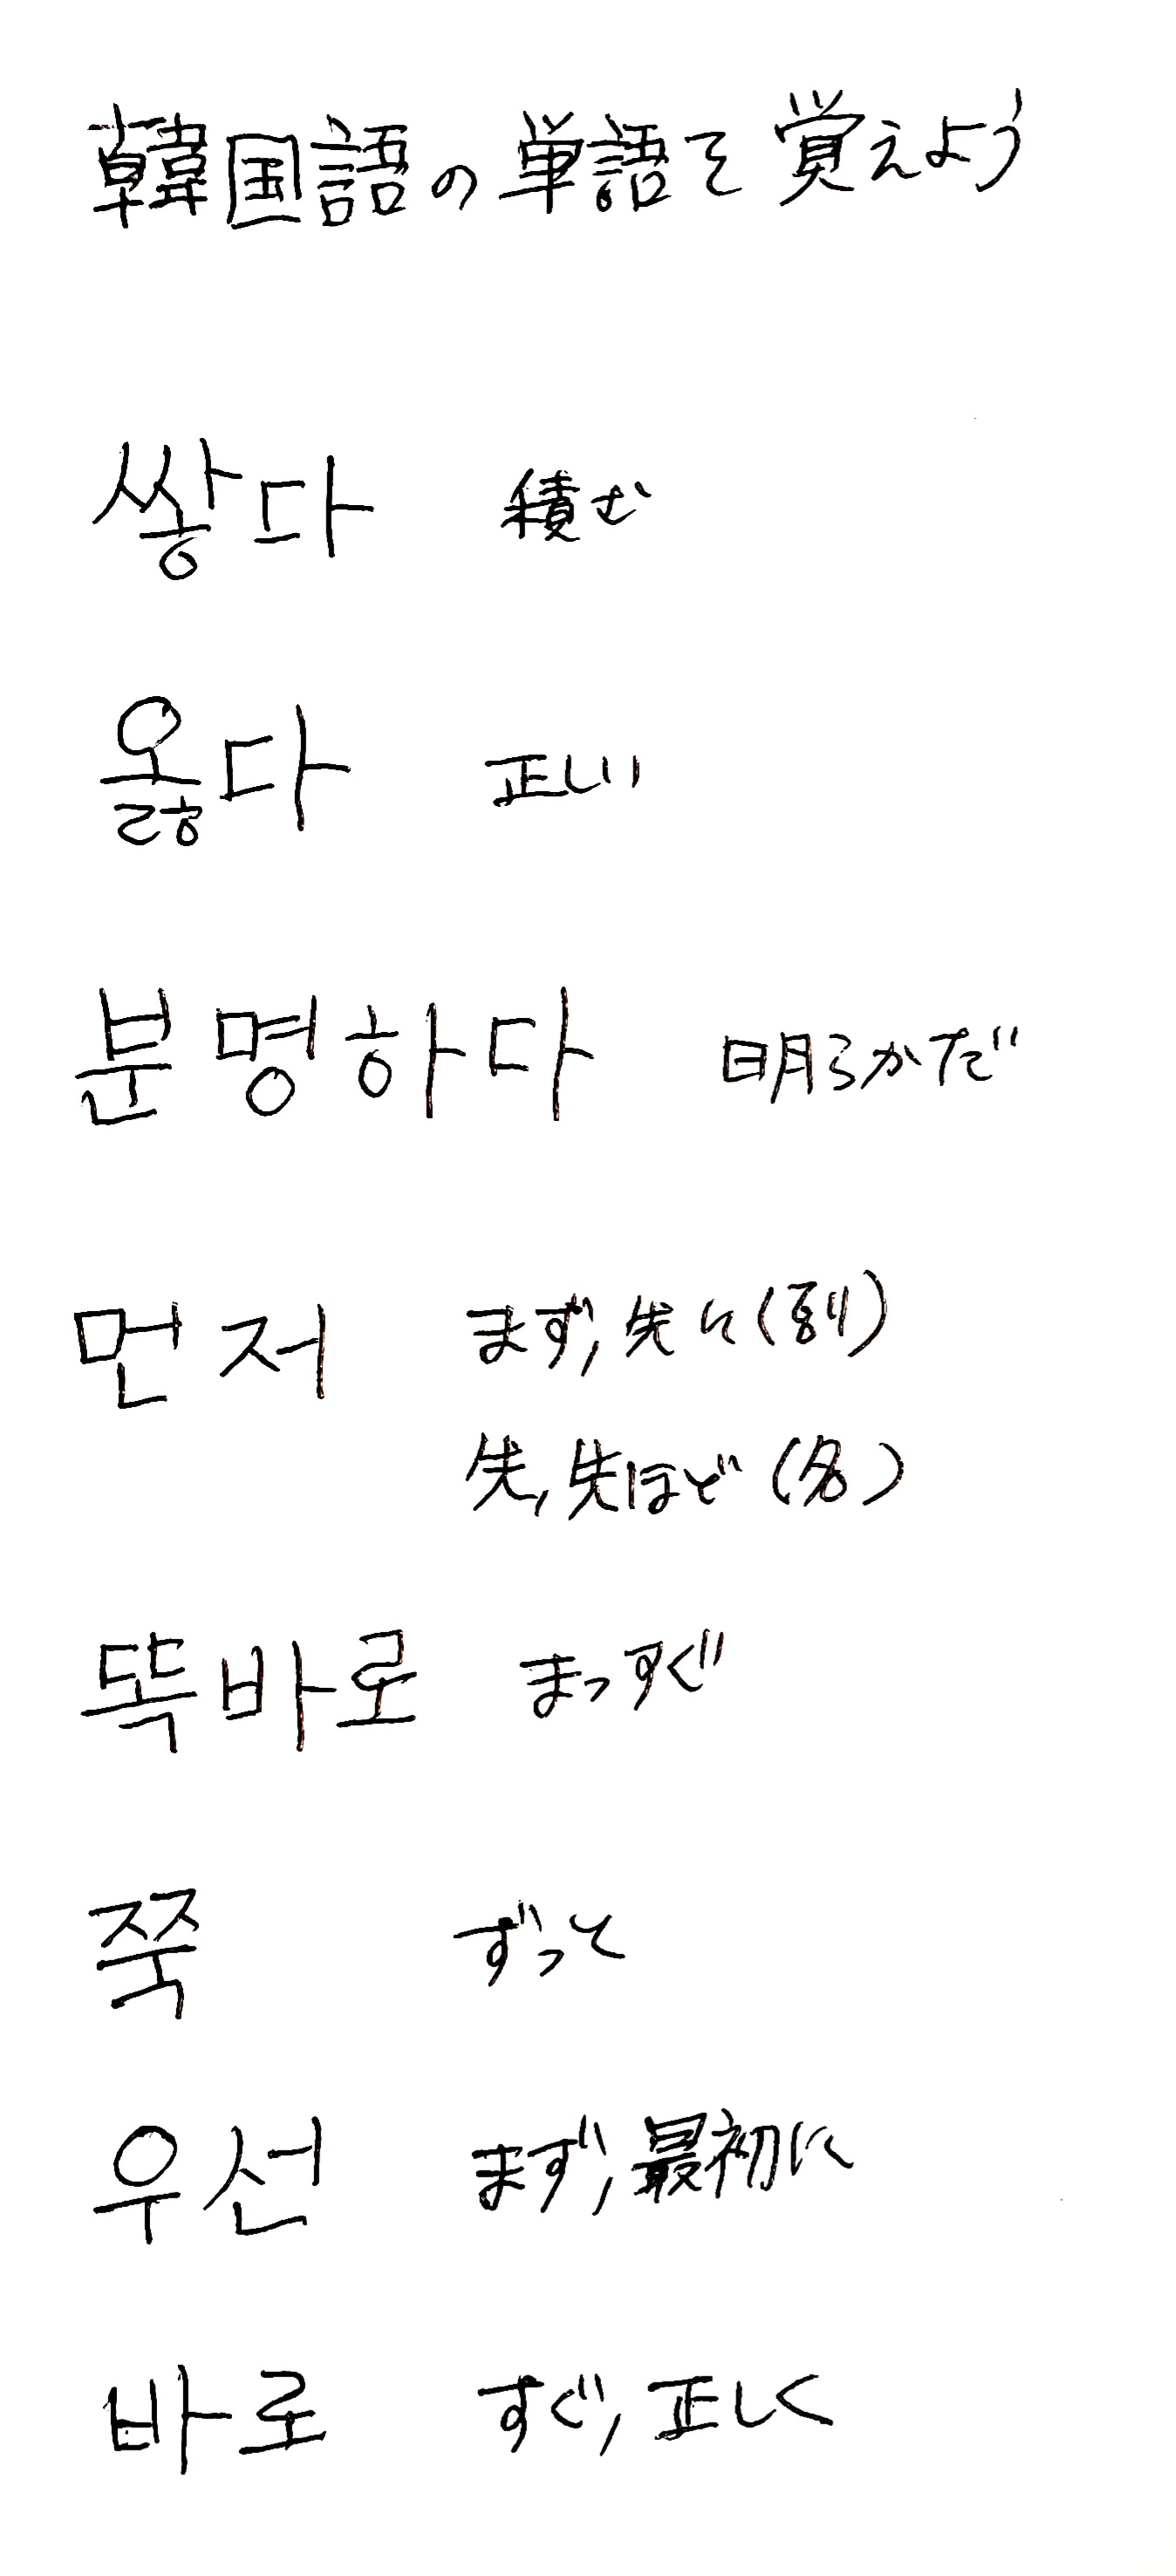 韓国語の単語を覚えよう
쌓다 積む
옳다 正しい
분명하다 明らかだ
먼저 まず,先に(副)
先,先ほど(名)
똑바로 まっすぐ
쭉 ずっと
우선 まず,最初に
바로 すぐ,正しく